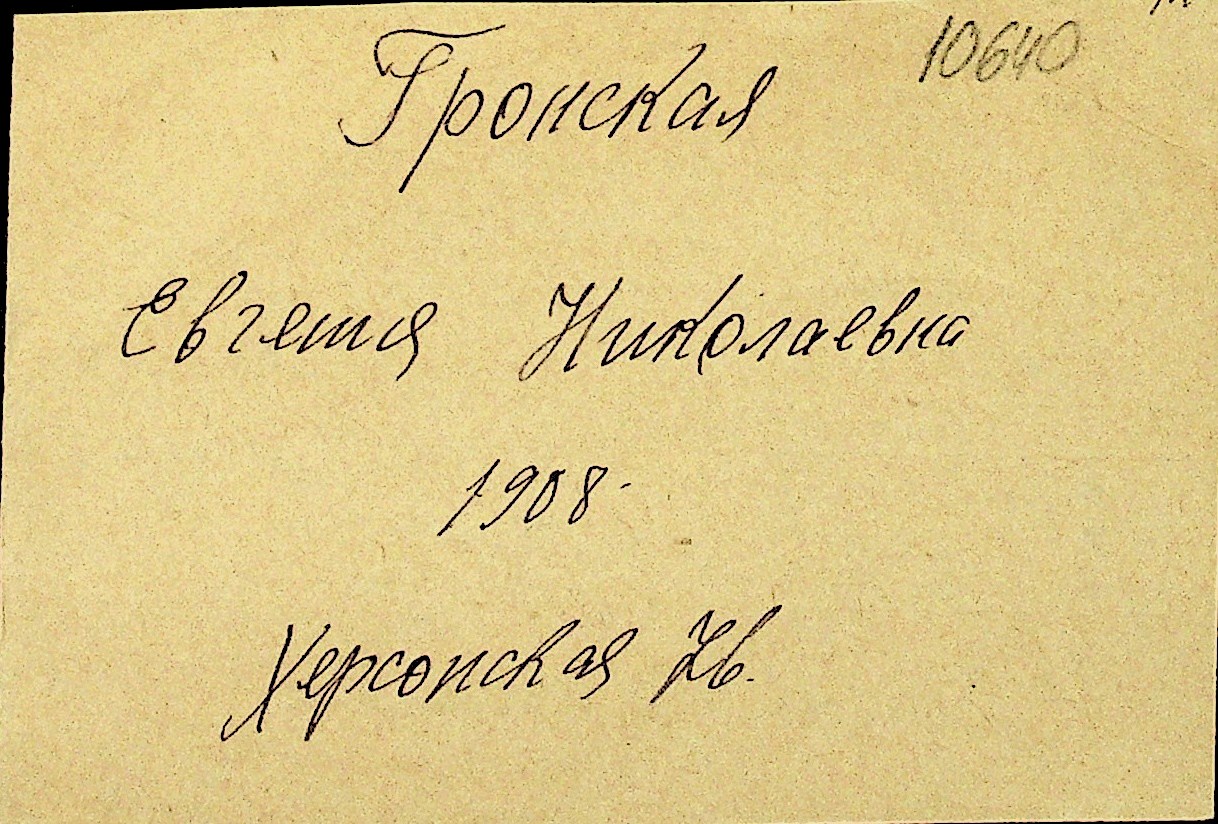 10640
Гронская
Евгения Николаевна
1908
Херсонская губ.